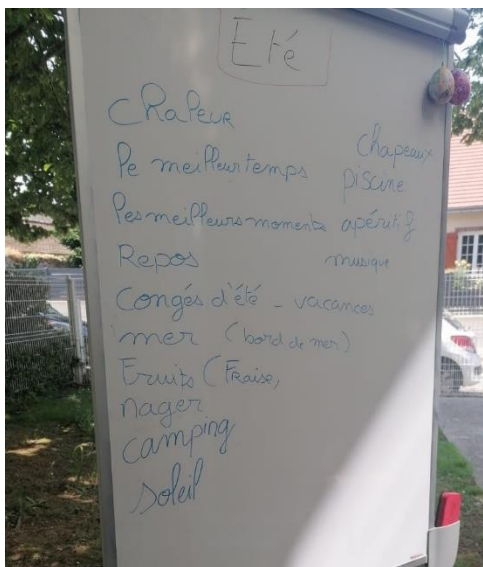 Eté
Chaleur
chapeaux
le meilleur temps
piscine
les meilleurs moments apéritif
Repos musique
Congés d'été - vacances
mer (bord de mer)
Fruits (Fraise,
nager
camping
soleil